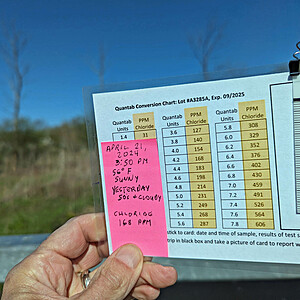 Quantab Conversion Chart: Lot #A3285A, Exp. 09/2025
Quantab Units PPM Chloride Quantab Units PPM Chloride Quantab Units PPM Chloride
1.4 31 3.6 127 5.8 308
3.8 140 6.0 329
4.0 154 6.2 352
4.2 168 6.4 376
4.4 183 6.6 402
4.6 198 6.8 430
4.8 214 7.0 459
5.0 231 7.2 491
5.2 249 7.4 526
5.4 268 7.6 564
5.6 287 7.8 606
APRIL 21,
2024
3:50 PM
56° F
SUNNY
YESTERDAY
50s + CLOUDY
CHLORIDE
168 PPM
stick to card: date and time of sample, results of test s
trip in black box and take a picture of card to report w